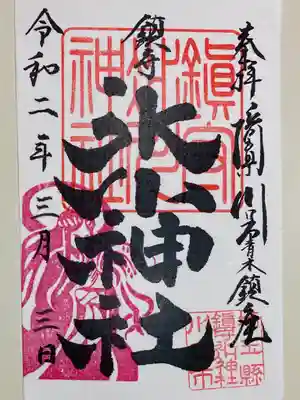 奉拝 武州川口青木鎮座
鎮守
氷川神社
令和二年三月三日
鎮守氷川神社
埼玉縣
鎮守氷川神社
川口市